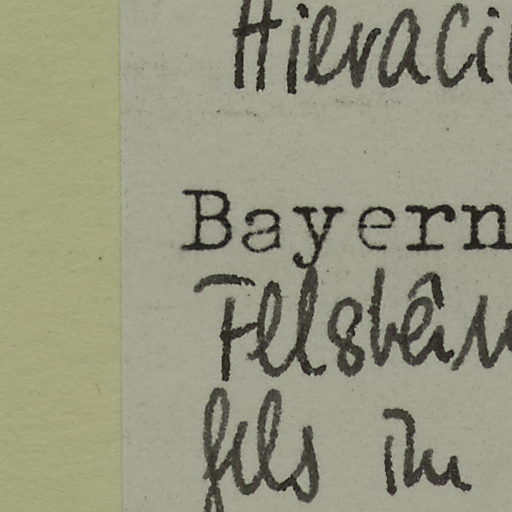 Hieraci
Bayern
fels im